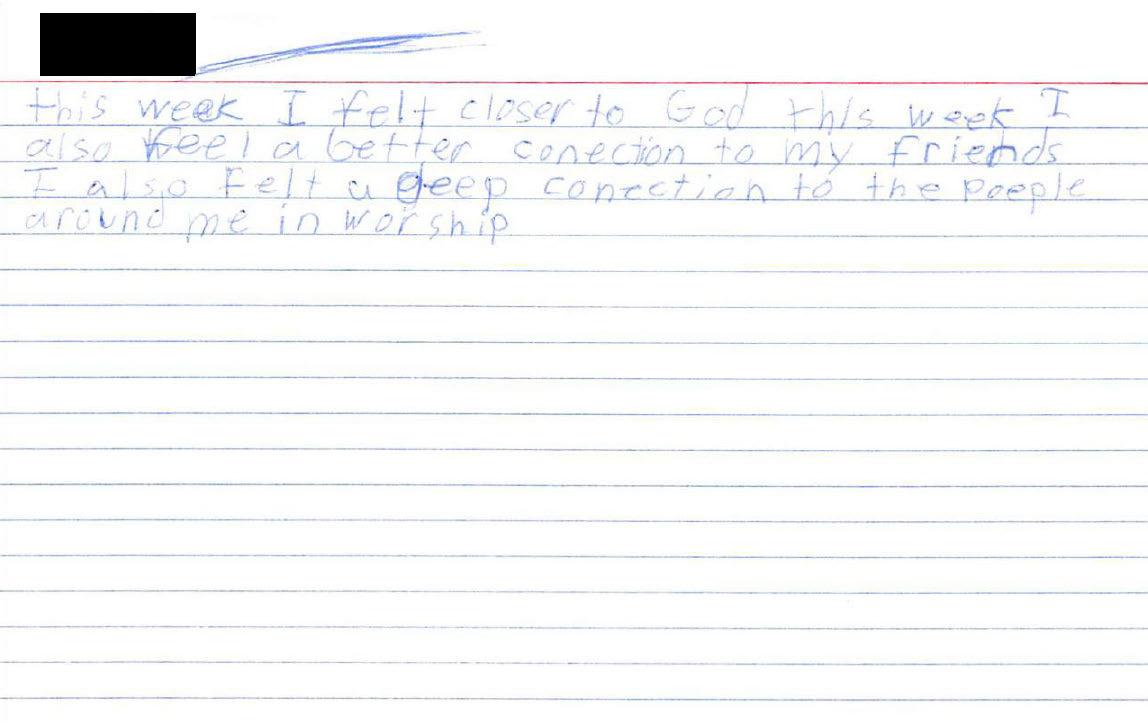 this week I felt closer to God this week I
also feel a better conection to my friends
I also Felt a deep conection to the poeple
around me in worship